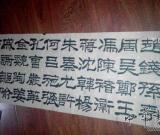 趙錢孫李
周吳鄭王
馮陳褚衛
蔣沈韓楊
朱秦尤許
何呂施張
孔曹嚴華
金魏陶姜
戚謝鄒喻